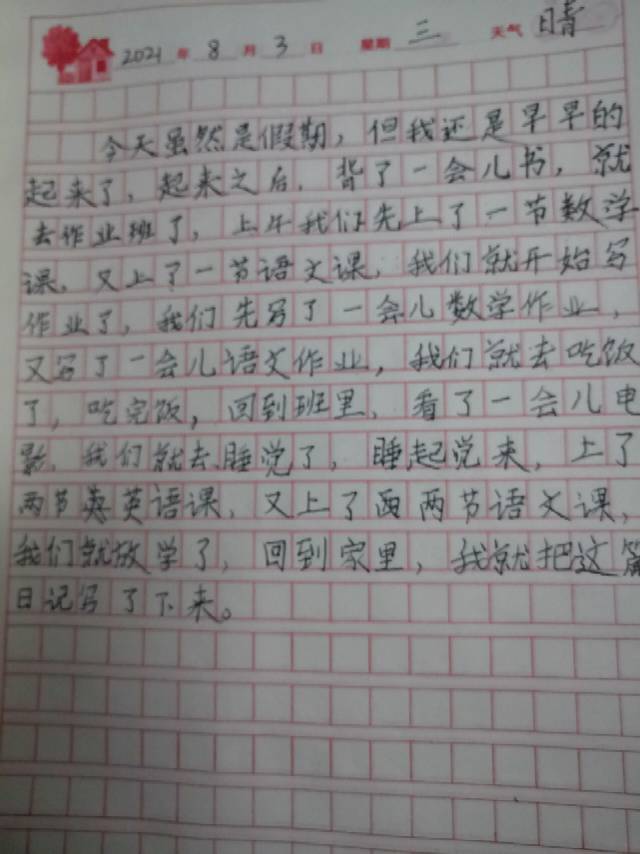 2021 年 8 月 3 日 星期 三 天气 晴
今天虽然是假期，但我还是早早的
起来了，起来之后，背了一会儿书，就
去作业班了，上午我们先上了一节数学
课，又上了一节语文课，我们就开始写
作业了，我们先写了一会儿数学作业，
又写了一会儿语文作业，我们就去吃饭
了，吃完饭，回到班里，看了一会儿电
影，我们就去睡觉了，睡起觉来，上了
两节英英语课，又上了西两节语文课，
我们就放学了，回到家里，我就把这篇
日记写了下来。